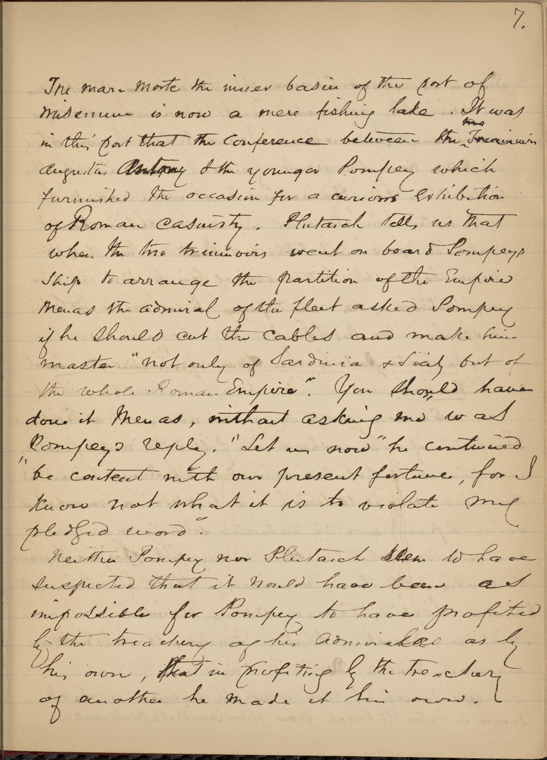 7.
The mare Morte the inner basin of the port of
Misenum is now a mere fishing lake. It was
in this port that the Conference between the two Triumvirs
Augustus Antony & the younger Pompey which
furnished the occasion for a curious Exhibition
of Roman Casuistry. Plutarch tells us that
when the two triumvirs went on board Pompeys
Ship to arrange the partition of the Empire
Menas the admiral of the fleet asked Pompey
if he should cut the cables and make him
master "not only of Sardinia & Sicily but of
the whole Roman Empire". You should have
done it Menas, without asking me was
Pompeys reply. "Let us now" he continued
"be content with our present fortune, for I
know not what it is to violate my
pledged word".
Neither Pompey nor Plutarch seem to have
suspected that it would have been as
impossible for Pompey to have profited
by the treachery of his Admiral as by
his own, that in profiting by the treachery
of another he made it his own.